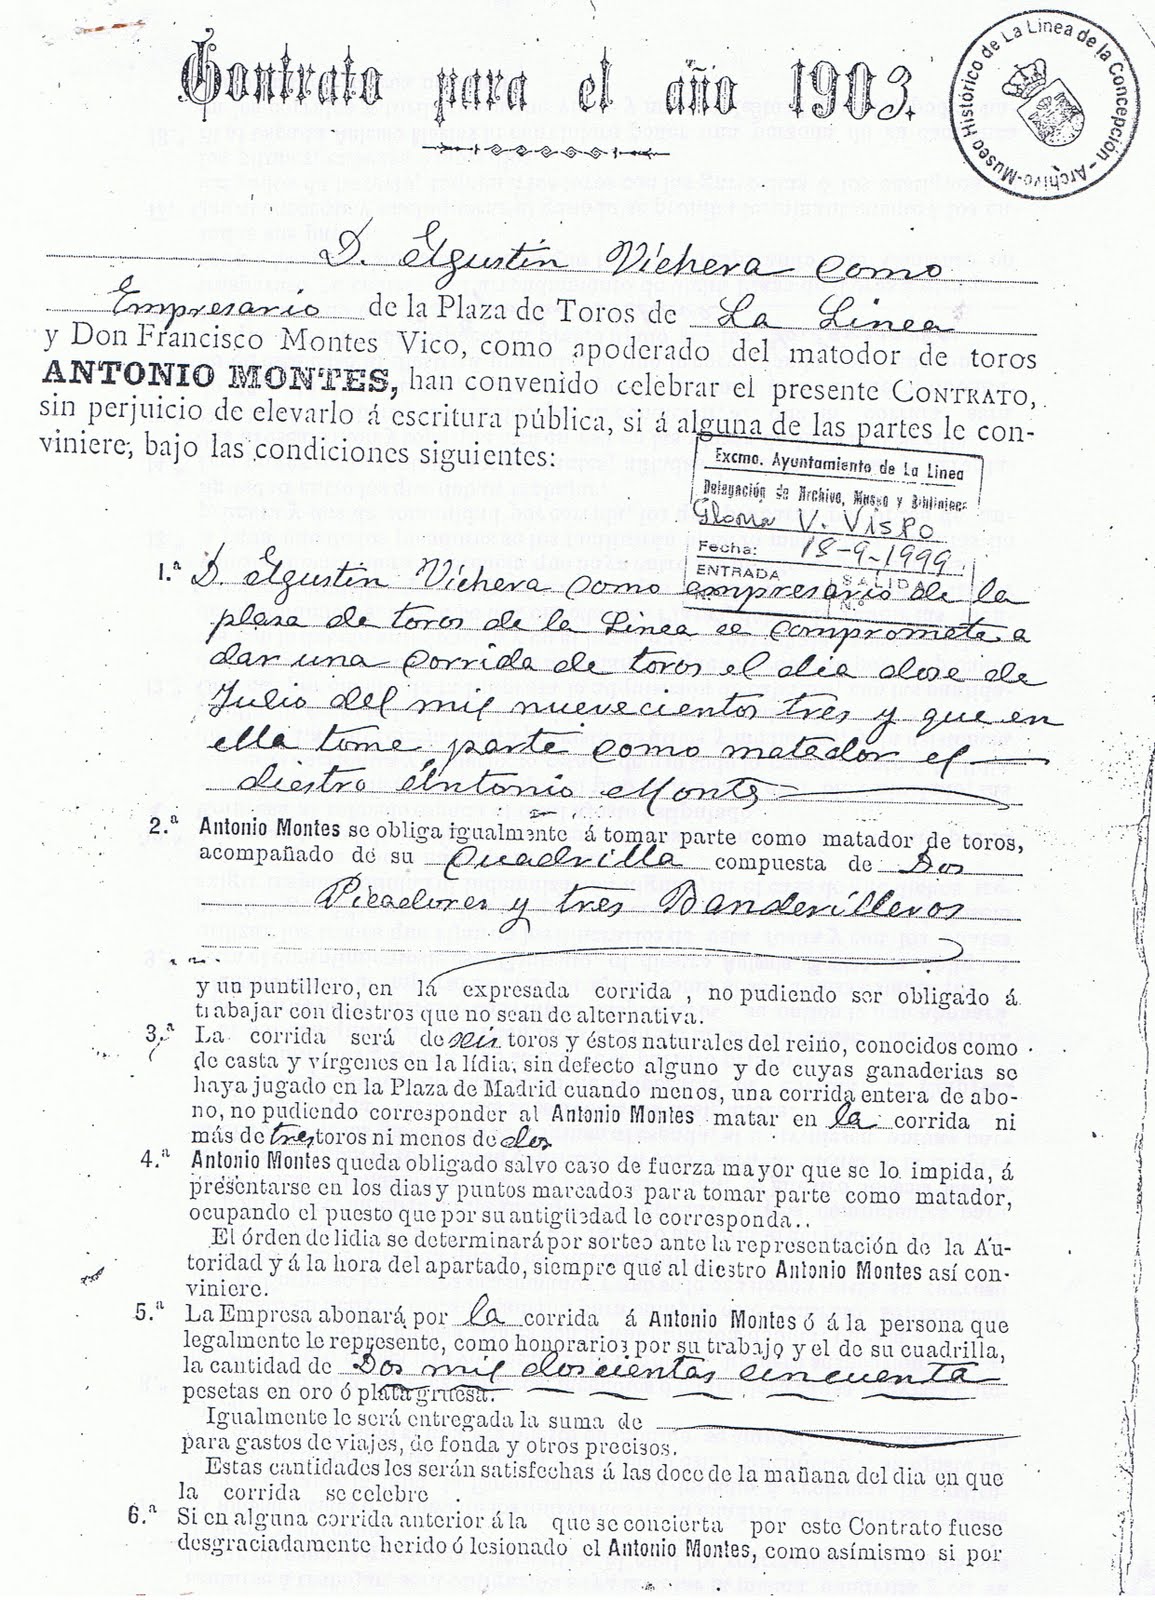 Contrato para el año 1903.
Archivo-Museo Histórico de La Linea de la Concepción -
D. Agustin Vichera como
Empresario de la Plaza de Toros de La Linea
y Don Francisco Montes Vico, como apoderado del matodor de toros
ANTONIO MONTES, han convenido celebrar el presente CONTRATO,
sin perjuicio de elevarlo á escritura pública, si á alguna de las partes le con-
viniere, bajo las condiciones siguientes:
Excmo. Ayuntamiento de La Linea
Delegación de Archivo, Museo y Bibliotec
Gloria V. Vispo
Fecha: 18-9-1999
ENTRADA SALIDA
N.º
1.ª D. Agustin Vichera como empresario de la
plasa de toros de la Linea se compromete a
dar una corrida de toros el dia dose de
Julio del mil nuevecientos tres y que en
ella tome parte como matador el
diestro Antonio Montes
2.ª Antonio Montes se obliga igualmente á tomar parte como matador de toros,
acompañado de su Quadrilla compuesta de Dos
Picadores y tres Banderilleros
y un puntillero, en lá expresada corrida , no pudiendo ser obligado á
trabajar con diestros que no sean de alternativa.
3.ª La corrida será de seis toros y éstos naturales del reino, conocidos como
de casta y vírgenes en la lídia, sin defecto alguno y de cuyas ganaderias se
haya jugado en la Plaza de Madrid cuando menos, una corrida entera de abo-
no, no pudiendo corresponder al Antonio Montes matar en la corrida ni
más de tres toros ni menos de dos
4.ª Antonio Montes queda obligado salvo caso de fuerza mayor que se lo impida, á
presentarse en los dias y puntos marcados para tomar parte como matador,
ocupando el puesto que por su antigüedad le corresponda..
El órden de lidia se determinará por sorteo ante la representación de la Au-
toridad y á la hora del apartado, siempre que al diestro Antonio Montes así con-
viniere.
5.ª La Empresa abonará por la corrida á Antonio Montes ó á la persona que
legalmente le represente, como honorarios por su trabajo y el de su cuadrilla,
la cantidad de Dos mil doscientas cincuenta
pesetas en oro ó plata gruesa.
Igualmente le será entregada la suma de
para gastos de viajes, de fonda y otros precisos.
Estas cantidades les serán satisfechas á las doce de la mañana del dia en que
la corrida se celebre
6.ª Si en alguna corrida anterior á la que se concierta por este Contrato fuese
desgraciadamente herido ó lesionado el Antonio Montes, como asímismo si por